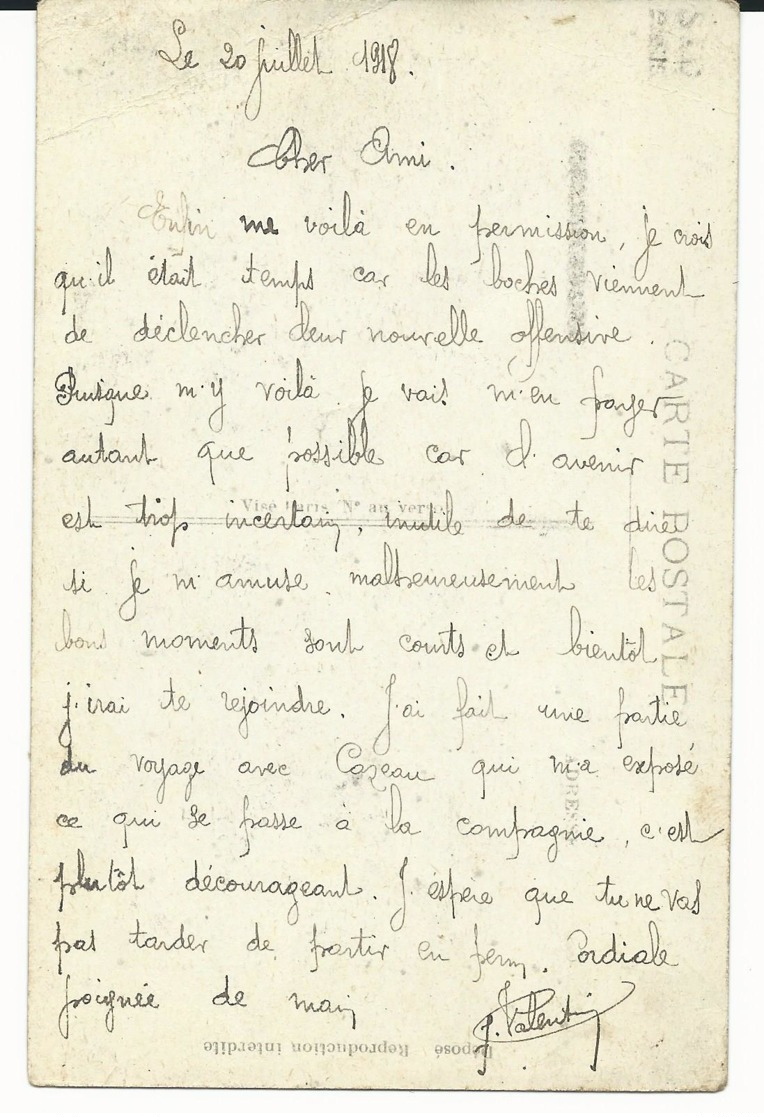 Le 20 juillet 1918.
Cher Ami.
Enfin me voilà en permission, je crois
qu'il était temps car les boches viennent
de déclencher leur nouvelle offensive.
Puisque m'y voilà je vais m'en payer
autant que possible car l'avenir
est trop incertain, inutile de te dire
si je m'amuse. malheureusement les
bons moments sont courts et bientôt
j'irai te rejoindre. J'ai fait une partie
du voyage avec Cazeau qui m'a exposé
ce qui se passe à la compagnie, c'est
plutôt décourageant. J'espère que tu ne vas
pas tarder de partir en perm. Cordiale
poignée de main
J. Valentin
CARTE POSTALE
ADRESSE
Visé Paris N° au verso
Déposé Reproduction interdite